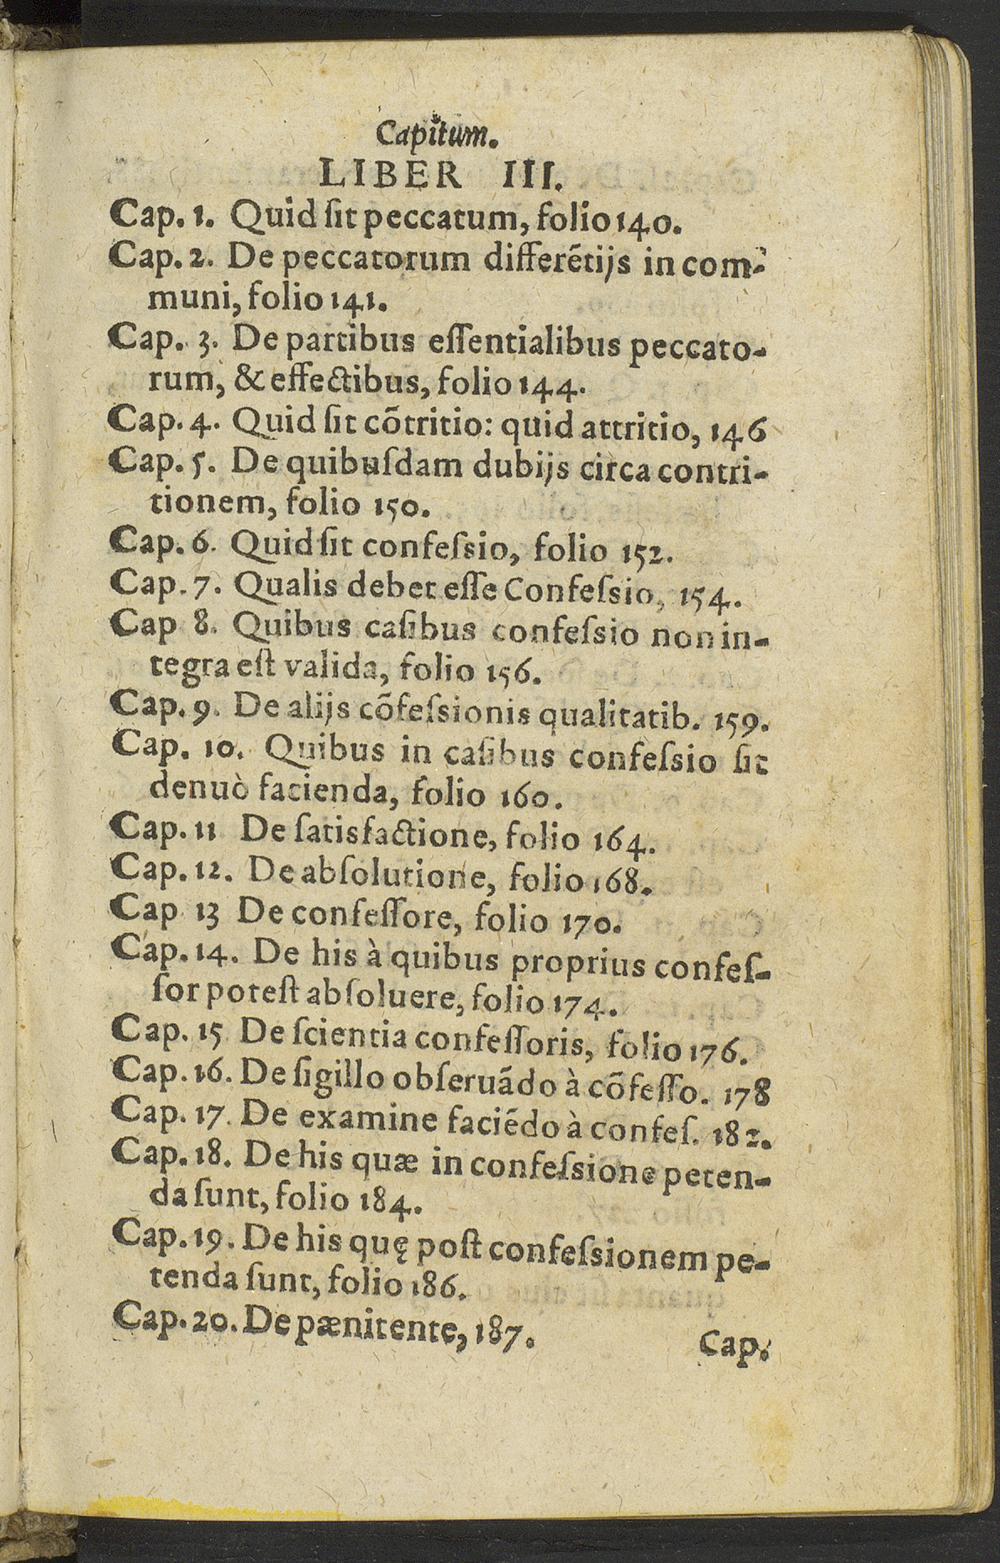 Capitum.
LIBER III.
Cap. 1. Quid ſit peccatum, folio 140.
Cap. 2. De peccatorum differētijs in com-
muni, folio 141.
Cap. 3. De partibus eſſentialibus peccato-
rum, & effectibus, folio 144.
Cap. 4. Quid ſit cõtritio: quid attritio, 146
Cap. 5. De quibuſdam dubijs circa contri-
tionem, folio 150.
Cap. 6. Quid ſit confeſsio, folio 152.
Cap. 7. Qualis debet eſſe Confeſsio, 154.
Cap 8. Quibus caſibus confeſsio non in-
tegra eſt valida, folio 156.
Cap. 9. De alijs cõfeſsionis qualitatib. 159.
Cap. 10. Quibus in caſibus confeſsio ſit
denuò facienda, folio 160.
Cap. 11 De ſatisfactione, folio 164.
Cap. 12. De abſolutione, folio 168.
Cap 13 De confeſſore, folio 170.
Cap. 14. De his à quibus proprius confeſ-
ſor poteſt abſoluere, folio 174.
Cap. 15 De ſcientia confeſſoris, folio 176.
Cap. 16. De ſigillo obſeruãdo à cõfeſſo. 178
Cap. 17. De examine faciēdo à confeſ. 182.
Cap. 18. De his quæ in confeſsione peten-
da ſunt, folio 184.
Cap. 19. De his quę poſt confeſsionem pe-
tenda ſunt, folio 186.
Cap. 20. De pænitente, 187.
Cap.